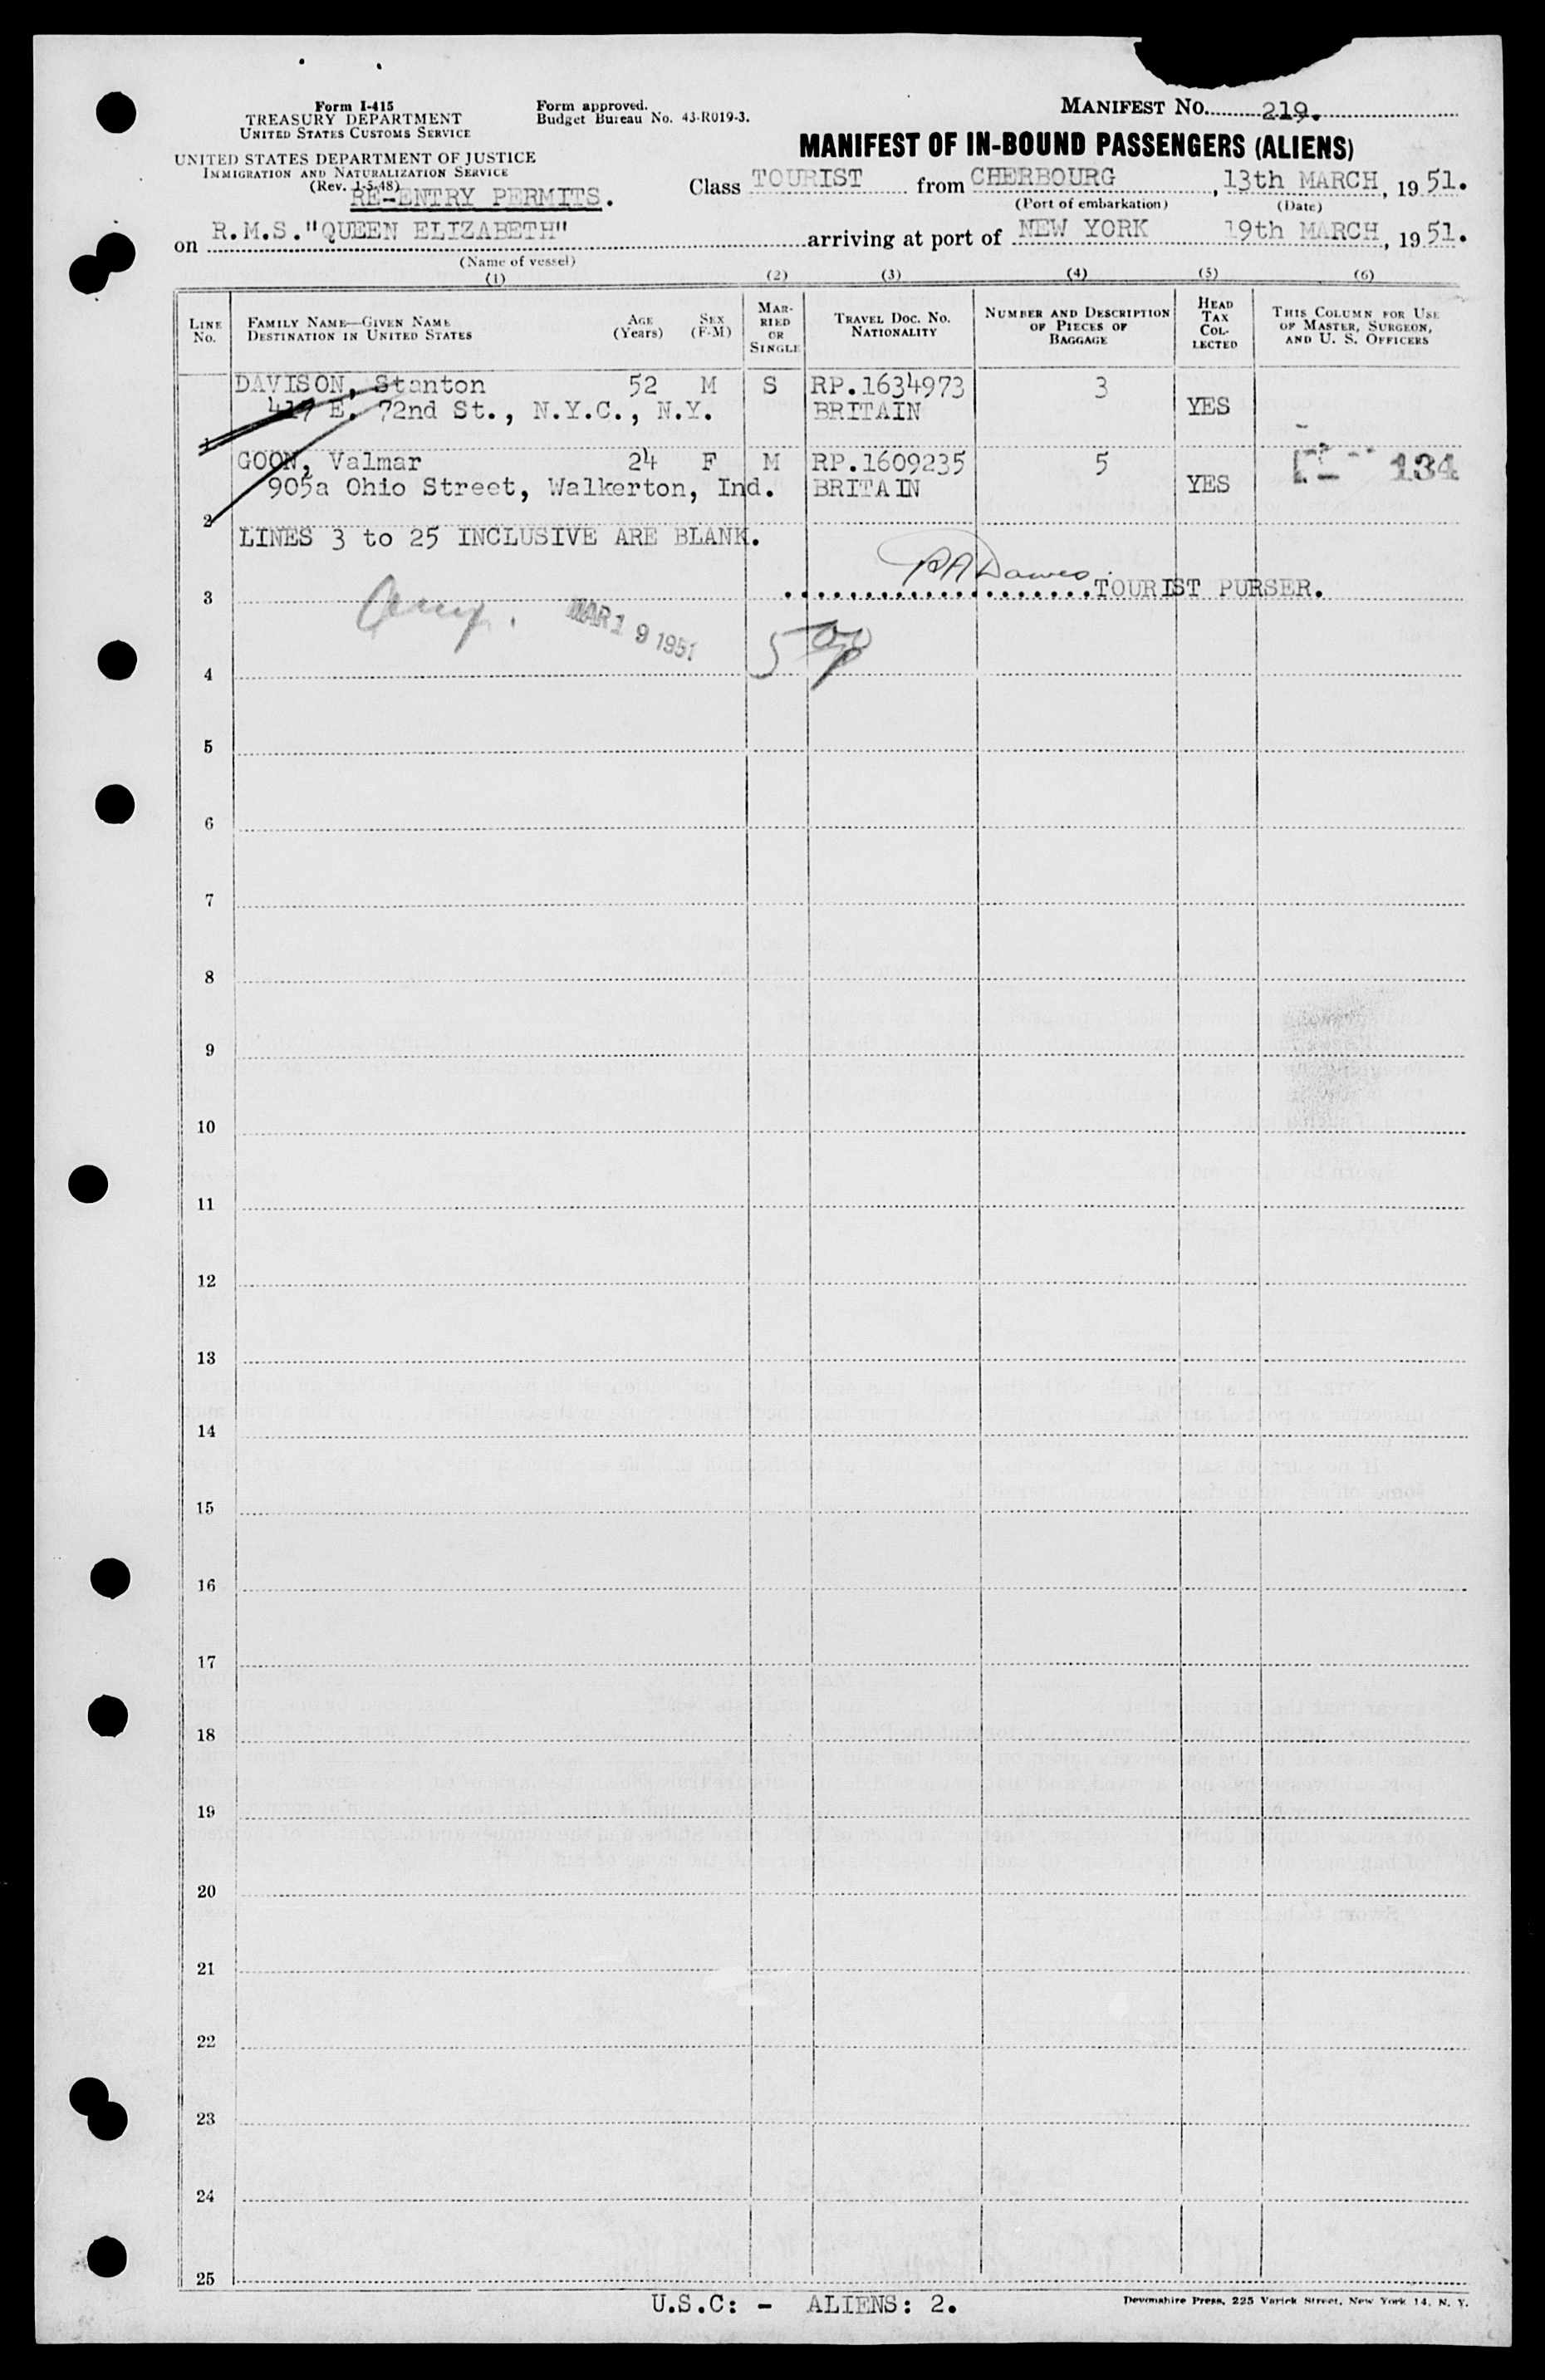 Form I-415
TREASURY DEPARTMENT
UNITED STATES CUSTOMS SERVICE
UNITED STATES DEPARTMENT OF JUSTICE
IMMIGRATION AND NATURALIZATION SERVICE
(Rev. 1-5-48)
RE-ENTRY PERMITS.
Form approved.
Budget Bureau No. 43-R019-3.
MANIFEST NO. 219.
MANIFEST OF IN-BOUND PASSENGERS (ALIENS)
Class TOURIST from CHERBOURG, 13th MARCH, 1951.
(Port of embarkation) (Date)
on R.M.S."QUEEN ELIZABETH" arriving at port of NEW YORK 19th MARCH, 1951.
(Name of vessel)
(1) (2) (3) (4) (5) (6)
LINE No. FAMILY NAME—GIVEN NAME DESTINATION IN UNITED STATES AGE (Years) SEX (F-M) MARRIED OR SINGLE TRAVEL DOC. NO. NATIONALITY NUMBER AND DESCRIPTION OF PIECES OF BAGGAGE HEAD TAX COLLECTED THIS COLUMN FOR USE OF MASTER, SURGEON, AND U. S. OFFICERS
DAVISON, Stanton 52 M S RP.1634973 3
417 E. 72nd St., N.Y.C., N.Y. BRITAIN YES
1
GOON, Valmar 24 F M RP.1609235 5 134
905a Ohio Street, Walkerton, Ind. BRITAIN YES
2
LINES 3 to 25 INCLUSIVE ARE BLANK.
RA Dawes
3 TOURIST PURSER.
MAR 19 1951
4
5
6
7
8
9
10
11
12
13
14
15
16
17
18
19
20
21
22
23
24
25
U.S.C: - ALIENS: 2.
Devonshire Press, 225 Varick Street, New York 14, N. Y.